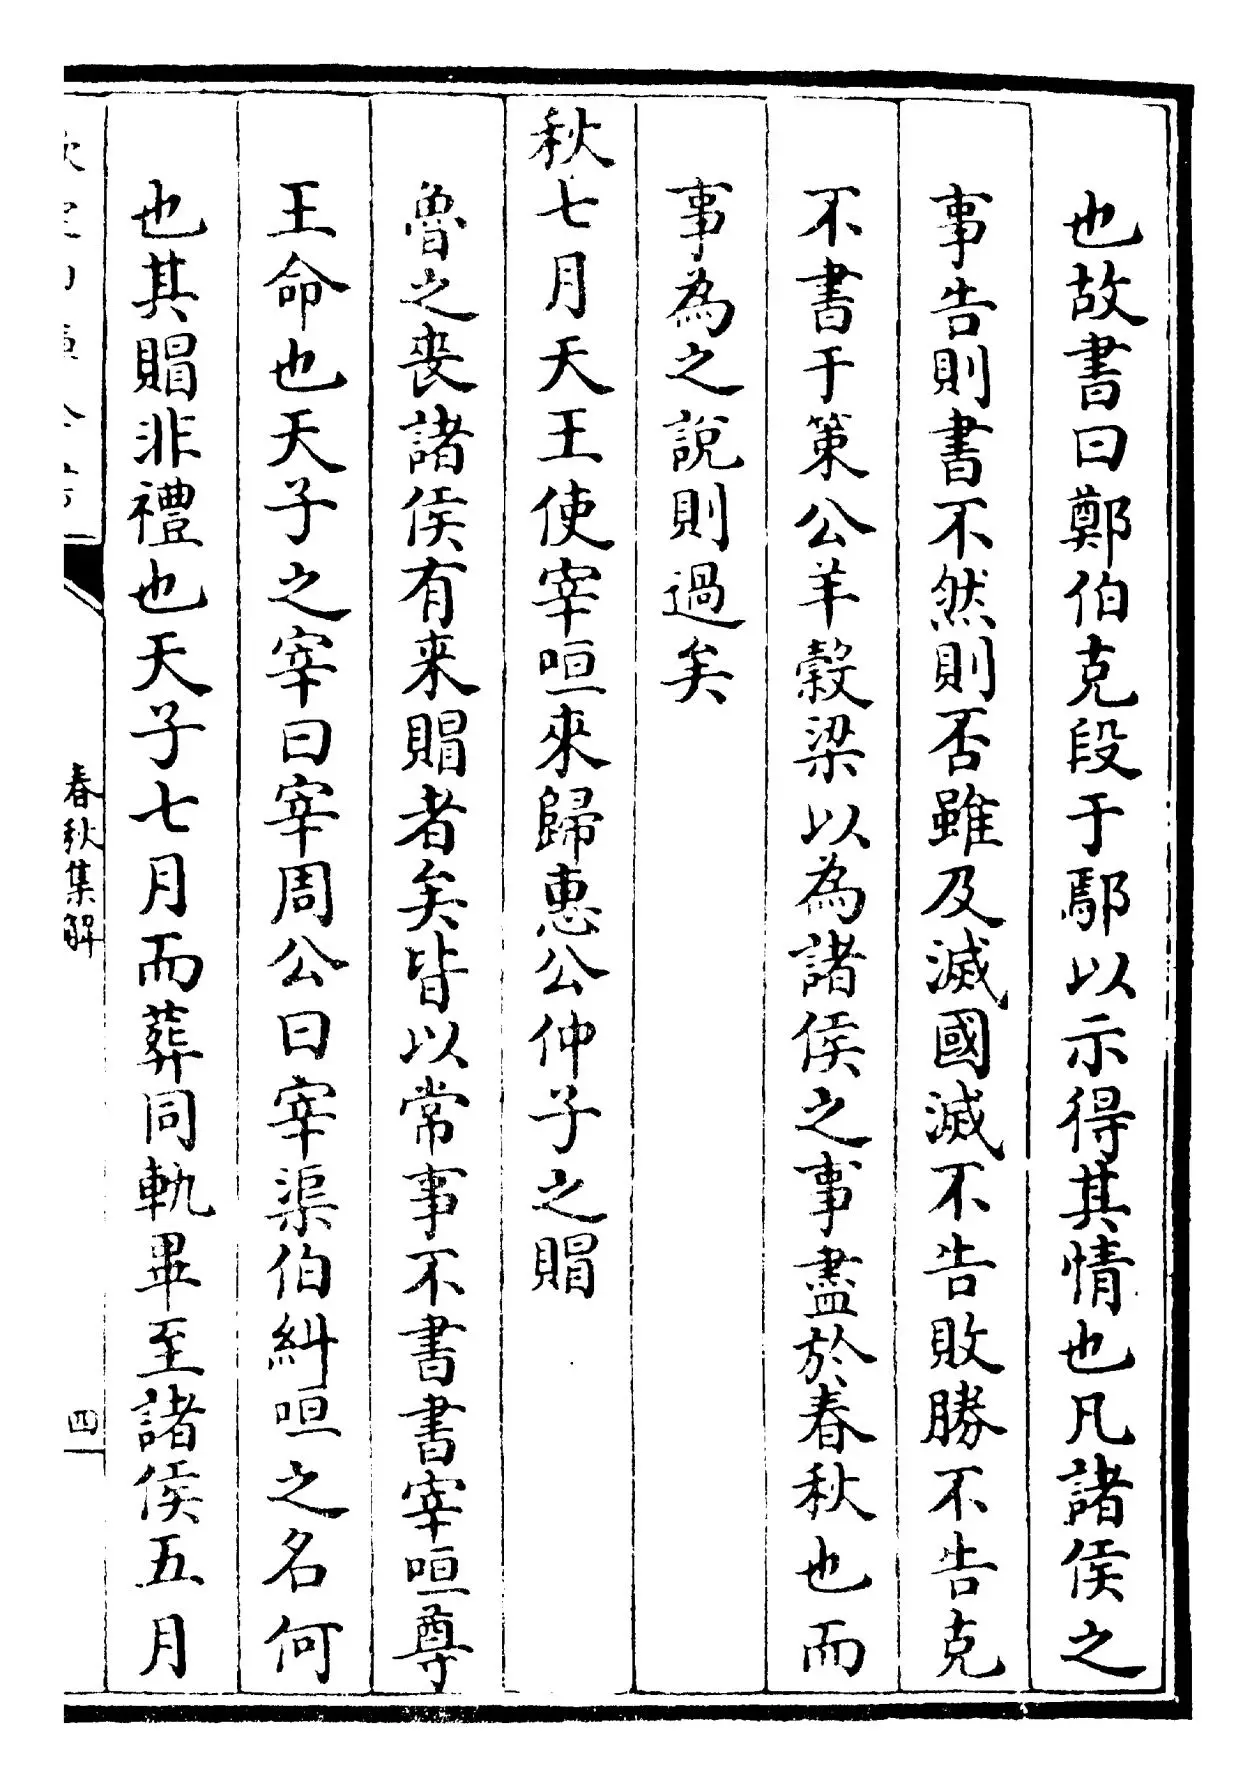 也故書曰鄭伯克段于鄢以示得其情也凡諸侯之
事告則書不然則否雖及滅國滅不告敗勝不告克
不書于策公羊糓梁以為諸侯之事盡於春秋也而
事為之說則過矣
秋七月天王使宰咺來歸惠公仲子之賵
魯之喪諸侯有来賵者矣皆以常事不書書宰咺尊
王命也天子之宰曰宰周公曰宰渠伯糾咺之名何
也其賵非禮也天子七月而葬同軌畢至諸侯五月
春秋集解
四